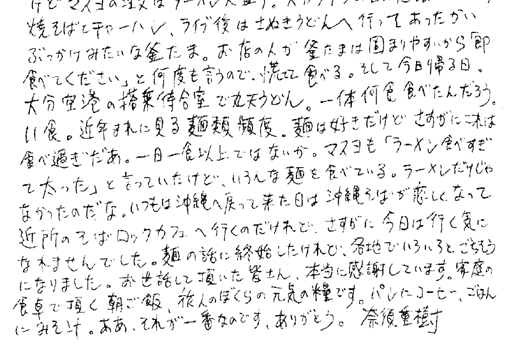 けどマスヨの注文はラーメン大盛り。
焼そばとチャーハン、ライブ後はさぬきうどんへ行ってあったかい
ぶっかけみたいな釜たま。お店の人が「釜たまは固まりやすいから即
食べてください」と何度も言うので、慌てて食べる。そして今日帰る日。
大分空港の搭乗待合室で丸天うどん。一体何食食べたんだろう。
11食。近年まれに見る麺類頻度。麺は好きだけどさすがにこれは
食べ過ぎだあ。一日一食以上ではないか。マスヨも「ラーメン食べすぎ
て太った」と言っていたけど、いろんな麺を食べている。ラーメンだけじゃ
なかったのだな。いつもは沖縄へ戻って来た日は沖縄そばが恋しくなって
近所のそばロックカフェへ行くのだけれど、さすがに今日は行く気に
なれませんでした。麺の話に終始したけれど、各地でいろいろとごちそう
になりました。お世話して頂いた皆さん、本当に感謝しています。家庭の
食卓で頂く朝ご飯 旅人のぼくらの元気の糧です。パンにコーヒー、ごはん
にみそ汁。ああ、それが一番なのです、ありがとう。 奈須重樹